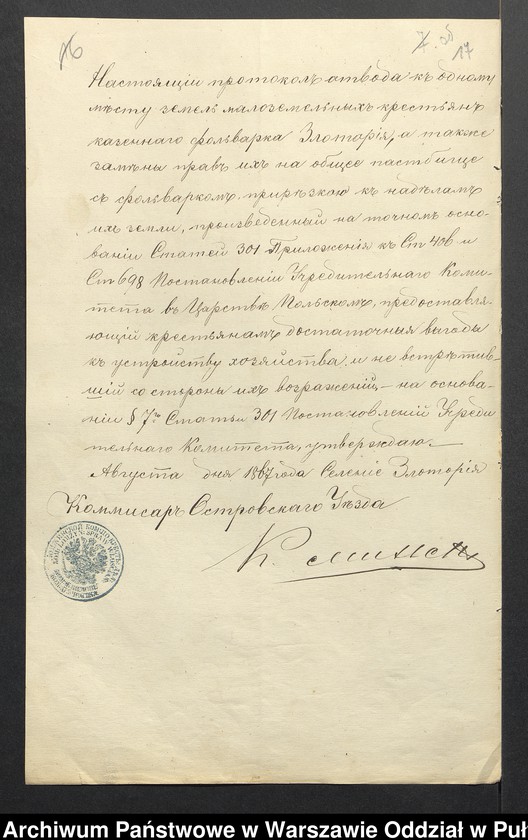 17
Настоящій протоколъ отвода къ одному
мѣсту земель малоземельныхъ крестьянъ
казеннаго фольварка Злоторія, а также
замѣны правъ ихъ на общее пастбище
съ фольваркомъ, прирѣзкою къ надѣламъ
ихъ земли, произведенный на точномъ осно-
ваніи Статей 301 Приложенія къ Ст 406 и
Ст 698 Постановленій Учредительнаго Коми-
тета въ Царствѣ Польскомъ, предоставля-
ющій крестьянамъ достаточныя выгоды
къ устройству хозяйства и не встрѣтив-
шій со стороны ихъ возраженій,- на основа-
ніи § 7го Статьи 301 Постановленій Учреди
тельнаго Комитета, утверждаю.-
Августа дня 1867 года Селеніе Злоторія
Коммисаръ Островскаго Уѣзда
Archiwum Państwowe w Warszawie Oddział w Puł